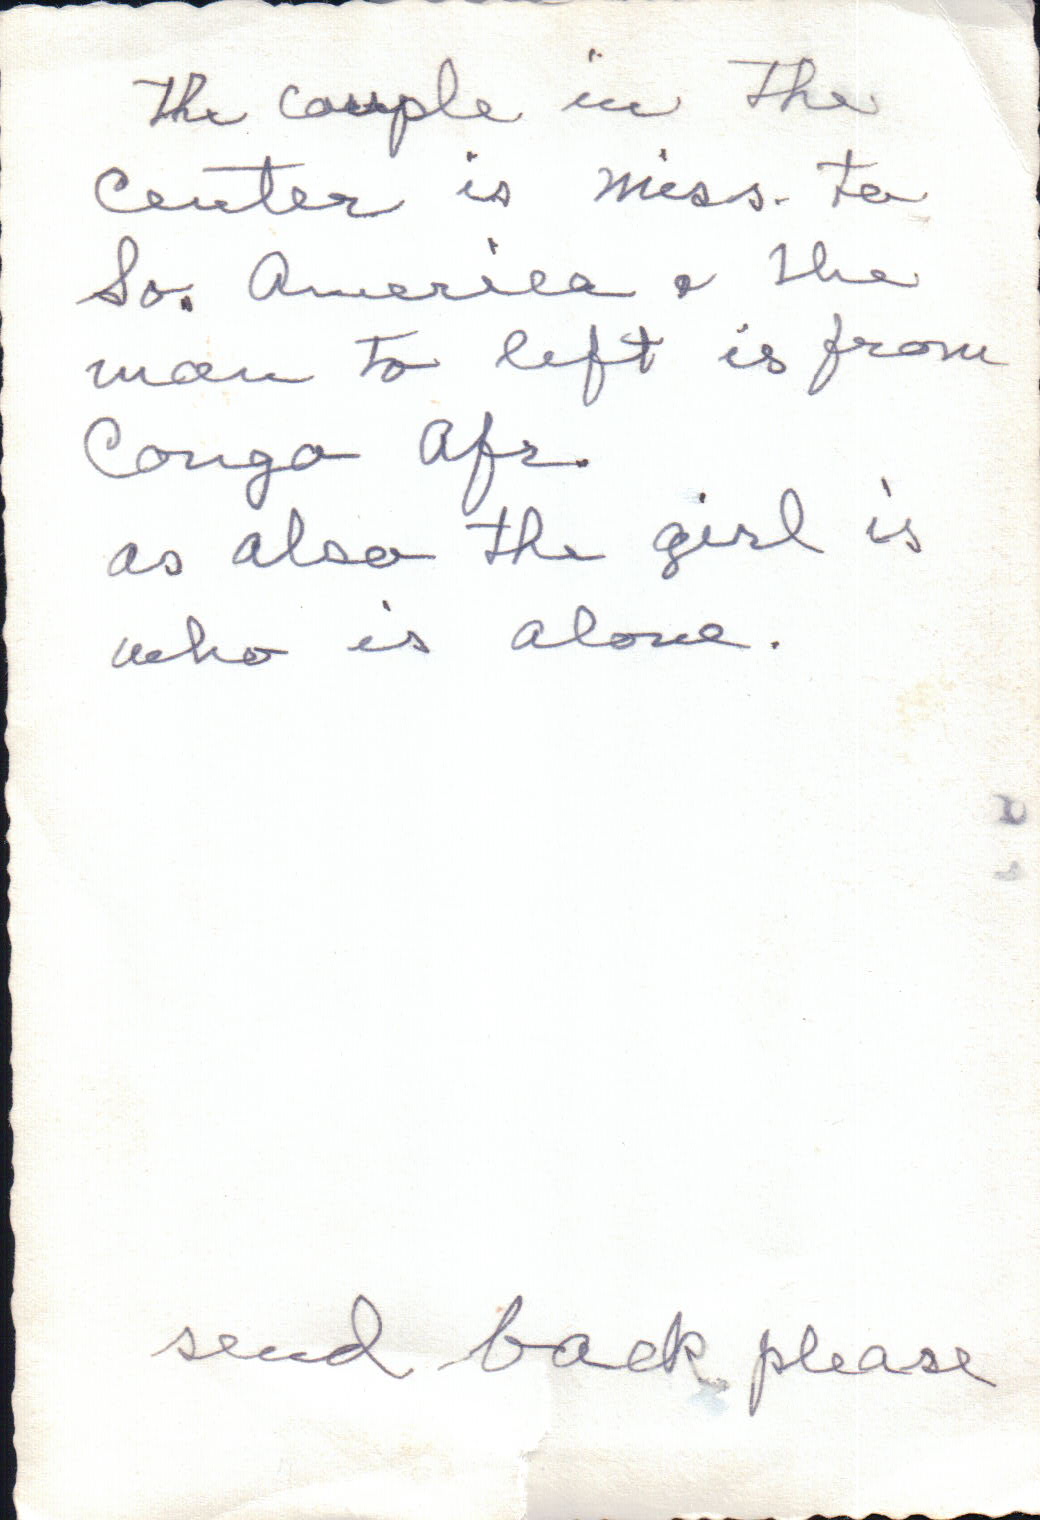 The couple in the
center is miss. to
So. America & the
man to left is from
Congo Afr.
as also the girl is
who is alone.
send back please